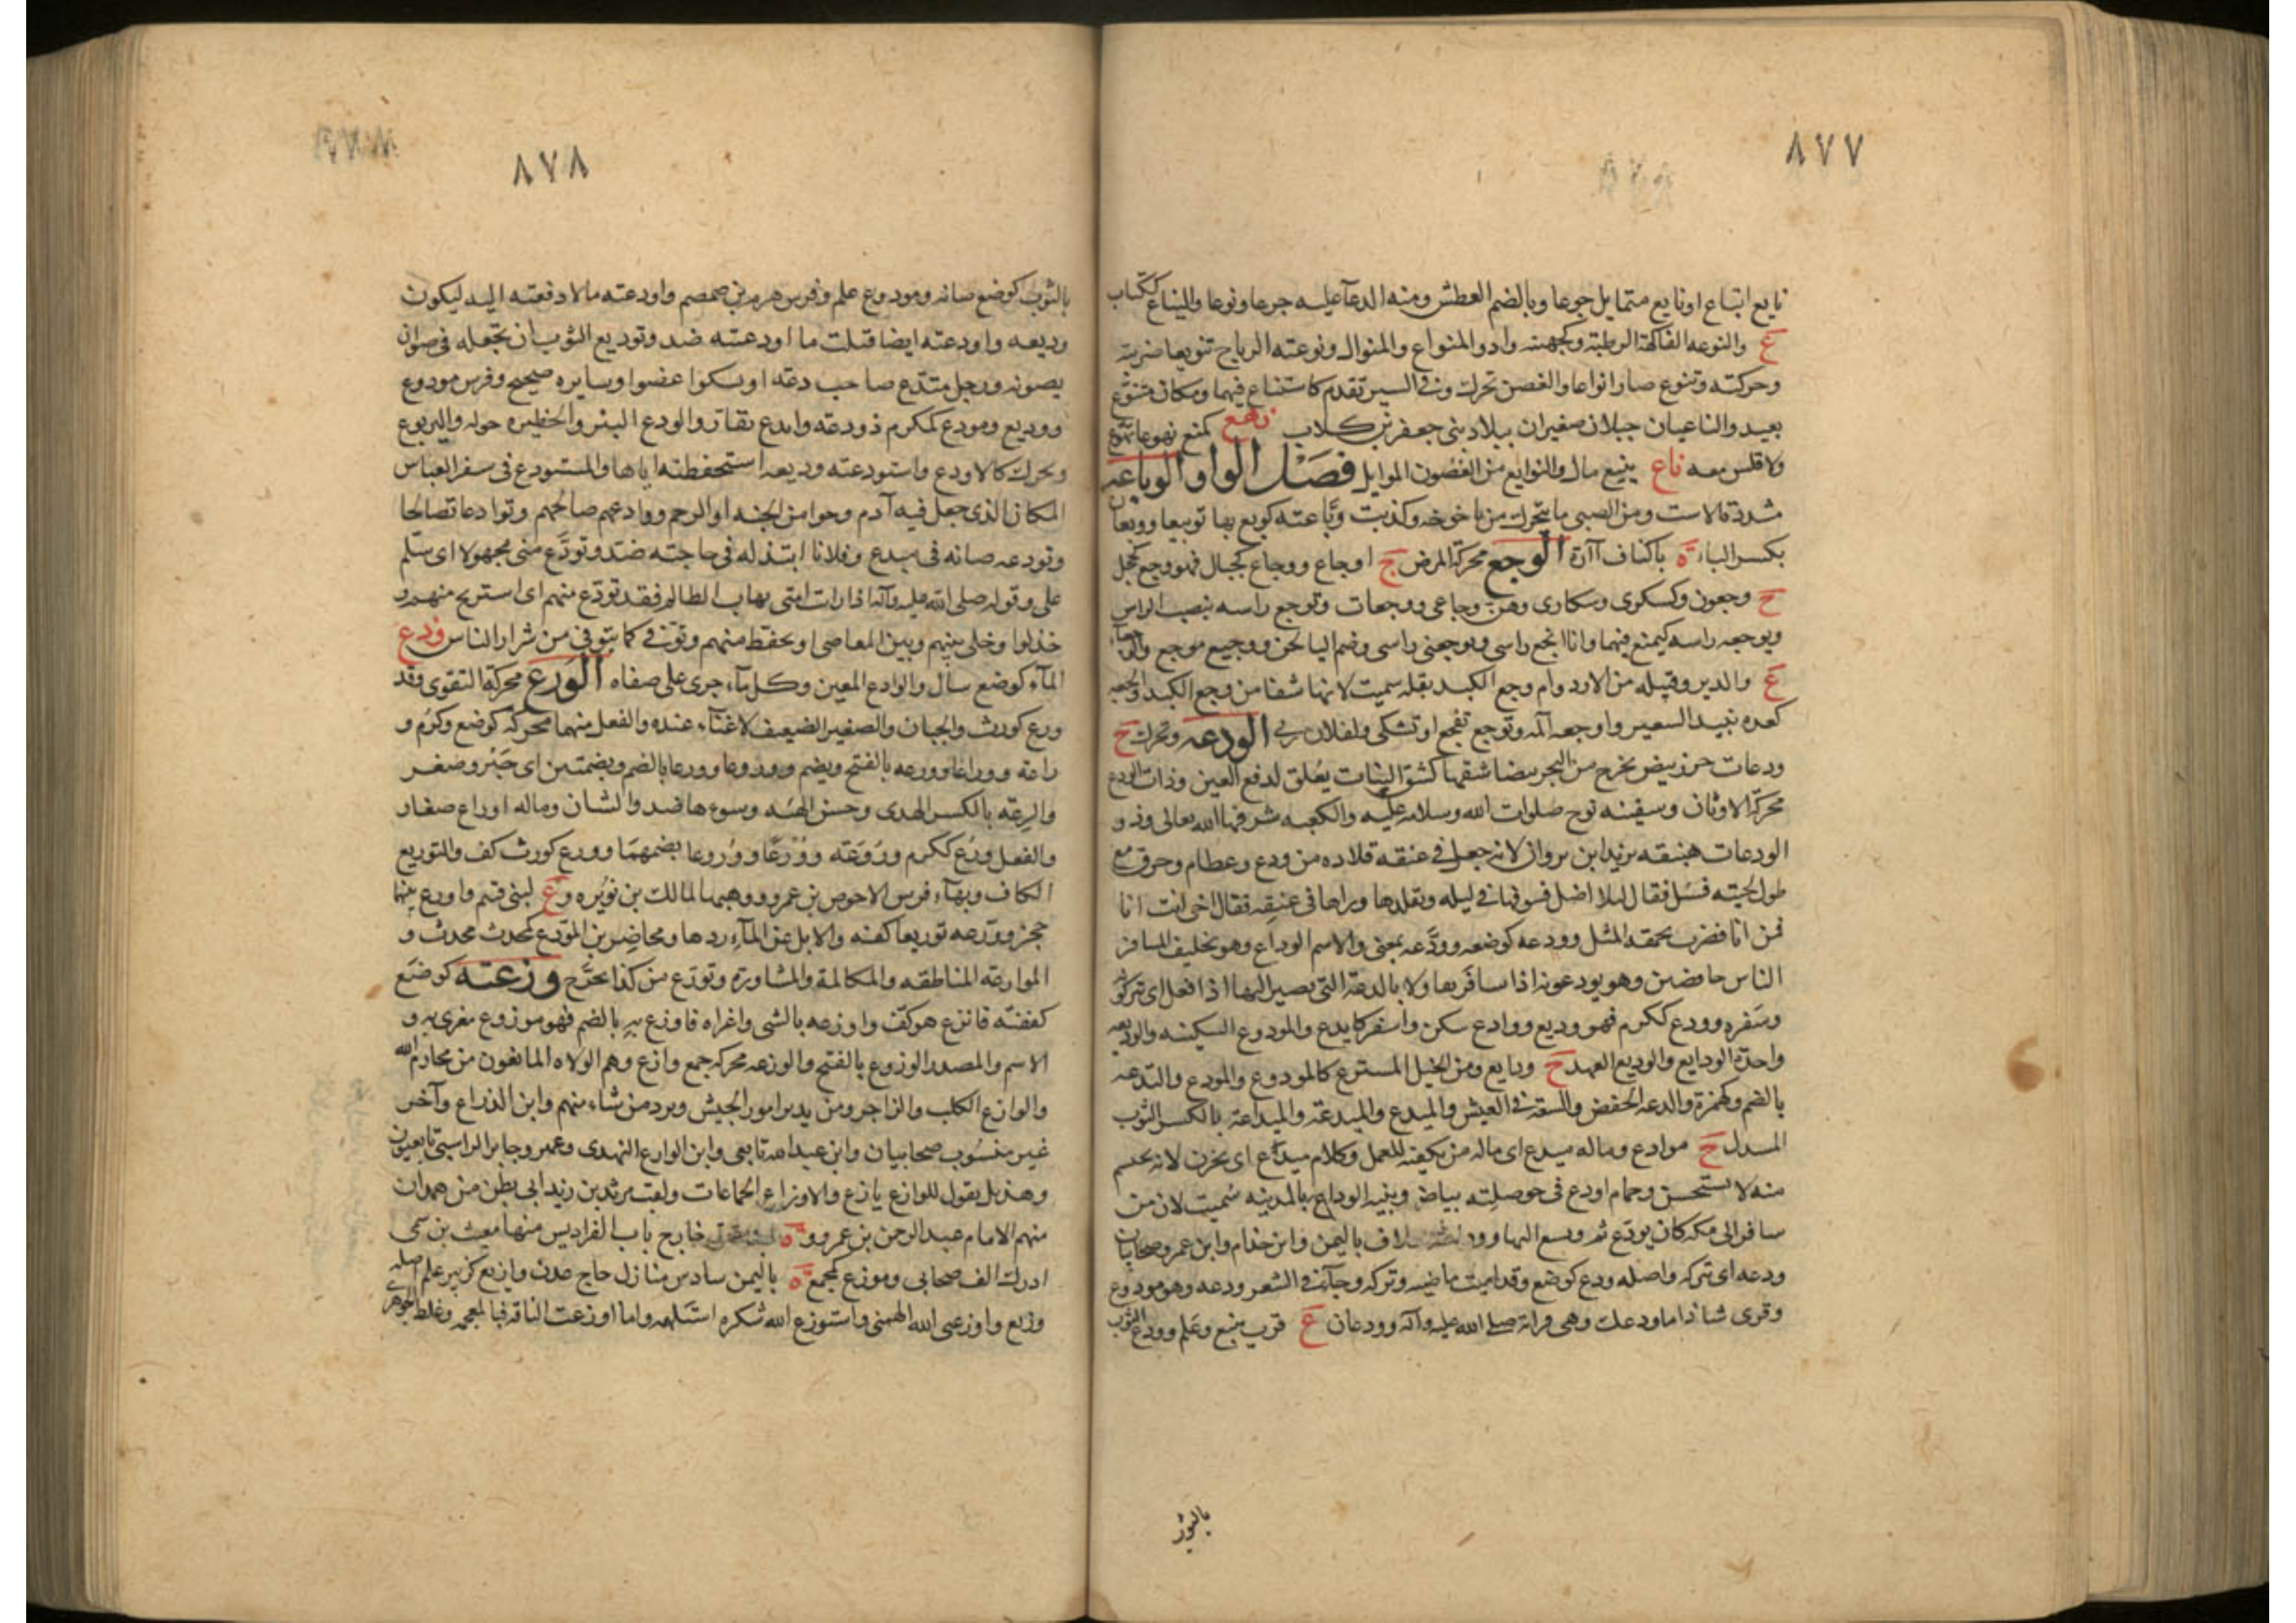 ٨٧٧
نايع اتباع او نايع متمايل جوعا وبالضم العطش ومنه الدعآ عليه جوعا ونوعا والنياع ككتاب
ع والنوعه الفاكهة الرطبة وكجهينه واد والمنواع والمنوال ونوعته الرياح تنويعا ضربته
وحركته وتنوع صار انواعا والغصن تحرك وفى السير تقدم كاستناع فيهما ومكان متنوع
بعيد والناعيان جبلان صغيران ببلاد بنى جعفر بن كلاب نهع كمنع نهوعا تهوع
ولا قلس معه ناع ينيع مال والنوايع من الغصون الموايل فصل الواو الوباعه
مشددة الاست ومن الصبى ما يتحرك من يافوخه وكذبت وباعته كوبع بها توبيعا ووبعان
بكسر الباء ة باكناف آرة الوجع محركة المرض ج اوجاع ووجاع كجبال فهو وجع كخجل
ج وجعون وكسكرى وسكارى وهن وجاعى ووجعات وتوجع راسه بنصب الراس
ويوجعه راسه كيمنع فيهما وانا ايجع راسى ويوجعنى راسى وضم اليا لحن ووجيع موجع والوجعآء
ع والدبر وقبيله من الازد وام وجع الكبد بقله سميت لانها شفا من وجع الكبد والجعه
كعده نبيذ الشعير واوجعه آلمه وتوجع تفجع او تشكى ولفلان رثى الودعه وتحرك ج
ودعات خرز بيض تخرج من البحر بيضا شقها كشق النبات يعلق لدفع العين وذات الودع
محركة الاوثان وسفينه نوح صلوات الله وسلامه عليه والكعبه شرفها الله تعالى وذو
الودعات هبنقه يزيد ابن ثروان لانه جعل فى عنقه قلاده من ودع وعظام وخزف مع
طول لحيته فسئل فقال لئلا اضل فسرقها فى ليله وتقلدها وراها فى عنقه فقال اخى انت انا
فمن انا فضرب بحمقه المثل وودعه كوضعه وودّعه بمعنى والاسم الوداع وهو تخليف المسافر
الناس خافضين وهو يودعونه اذا سافر تفاولا بالدعة التى يصير اليها اذا قفل اى يتركونه
وسفره وودع ككرم فهو وديع ووادع سكن واستقر كايدع والمودوع السكينه والوديعه
واحدة الودايع والوديع العهد ج ودايع ومن الخيل المستريح كالمودوع والمودع والتدعه
بالضم وكهمزة والدعه الخفض والسعة فى العيش والميدع والميدعة والميداعة بالكسر الثوب
المبتذل ج موادع وماله ميدع اى ماله من يكفيه للعمل وكلام ميدع اى يحزن لانه يحتشم
منه لا يستحسن وحمام اودع فى حوصلته بياض وثنيه الوداع بالمدينه سميت لان من
سافر الى مكه كان يودع ثم ويشيع اليها
ودعه اى تركه واصله ودع كوضع وقد اميت ماضيه وتركه وجآء فى الشعر ودعه وهو مودوع
وقرى شاذا ما ودعك وهى قراة صلى الله عليه وآله وودعان ع قرب ينبع وعلم وودع الثوب
بالثوب
٨٧٨
بالثوب كوضع صانه ومودوع علم وفرس هرم بن ضمضم واودعته مالا دفعته اليه ليكون
وديعه واودعته ايضا قبلت ما اودعته ضد وتوديع الثوب ان تجعله فى صوان
يصونه ورجل متدع صاحب دعة او يشكوا عضوا وسايره صحيح وفرس مودوع
ووديع ومودع كمكرم ذو دعه وايدع تقار والودع البئر والحظيره حوله واليربوع
وتحرك كالاودع واستودعته وديعه استحفظته اياها والمستودع فى سفر العباس
المكان الذى جعل فيه آدم وحوا من الجنه او الرحم ووادعهم صالحهم وتوادعا تصالحا
وتودعه صانه فى ميدع وفلانا ابتذله فى حاجته ضد وتودع منى مجهولا اى سلم
على وقوله صلى الله عليه وآله اذا رات امتى تهاب الظالم فقد تودع منهم اى استريح منهم و
خذلوا وخلى بينهم وبين المعاصى او تحفظ منهم وتوقى كما يتوقى من شرار الناس ودع
المآء كوضع سال والوادع المعين وكل مآء جرى على صفاه الورع محركة التقوى وقد
ورع كورث والجبان والصغير الضعيف لا غنآء عنده والفعل منهما محركه كوضع وكرم و
راعة ووراعا وورعه بالفتح ويضم ووروعا وورعا بالضم وبضمتين اى جبن وصغر
والرعة بالكسر الهدى وحسن الهئه وسوءها ضد والشان وماله اوراع صغار
والفعل ورع ككرم وروعة وورعا ووروعا بضمهما وورع كورث كف والتوريع
الكاف وبهآء فرس الاحوص بن عمرو ووهبها لمالك بن نويره و ع لبنى فقيم واورع بينهما
حجز وورعه توريعا كفه والابل عن المآء ردها ومحاضر بن المورع كمحدث محدث و
الموارعة المناطقه والمكالمة والمشاورة وتورع من كذا تحرج وزعته كوضع
كففته فاتزع هو كف واوزعه بالشى واغراه فاوزع به بالضم فهو موزوع مغرى به و
الاسم والمصدر الوزوع بالفتح والوزعه محركه جمع وازع وهم الولاه المانعون من محارم الله
والوازع الكلب والزاجر ومن يدبر امور الجيش ويرد من شاء منهم وابن الذراع وآخر
غير منسوب صحابيان وابن عبد الله تابعى وابن الوازع النهدى وعمر وجابر الراسبى تابعيون
وهذيل يقول للوازع يازع والاوزاع الجماعات ولقب مرثد بن زيد ابى بطن من همدان
منهم الامام عبد الرحمن بن عمرو و ة خارج باب الفراديس منها مغيث بن سمى
ادرك الف صحابى وموزع كمجمع ة باليمن سادس منازل حاج عدن وازيع كزبير علم اصله
وزيع واوزعنى الله الهمنى واستوزع الله شكره استلهمه واما اوزعت الناقه فبالمعجمه وغلط الجوهرى